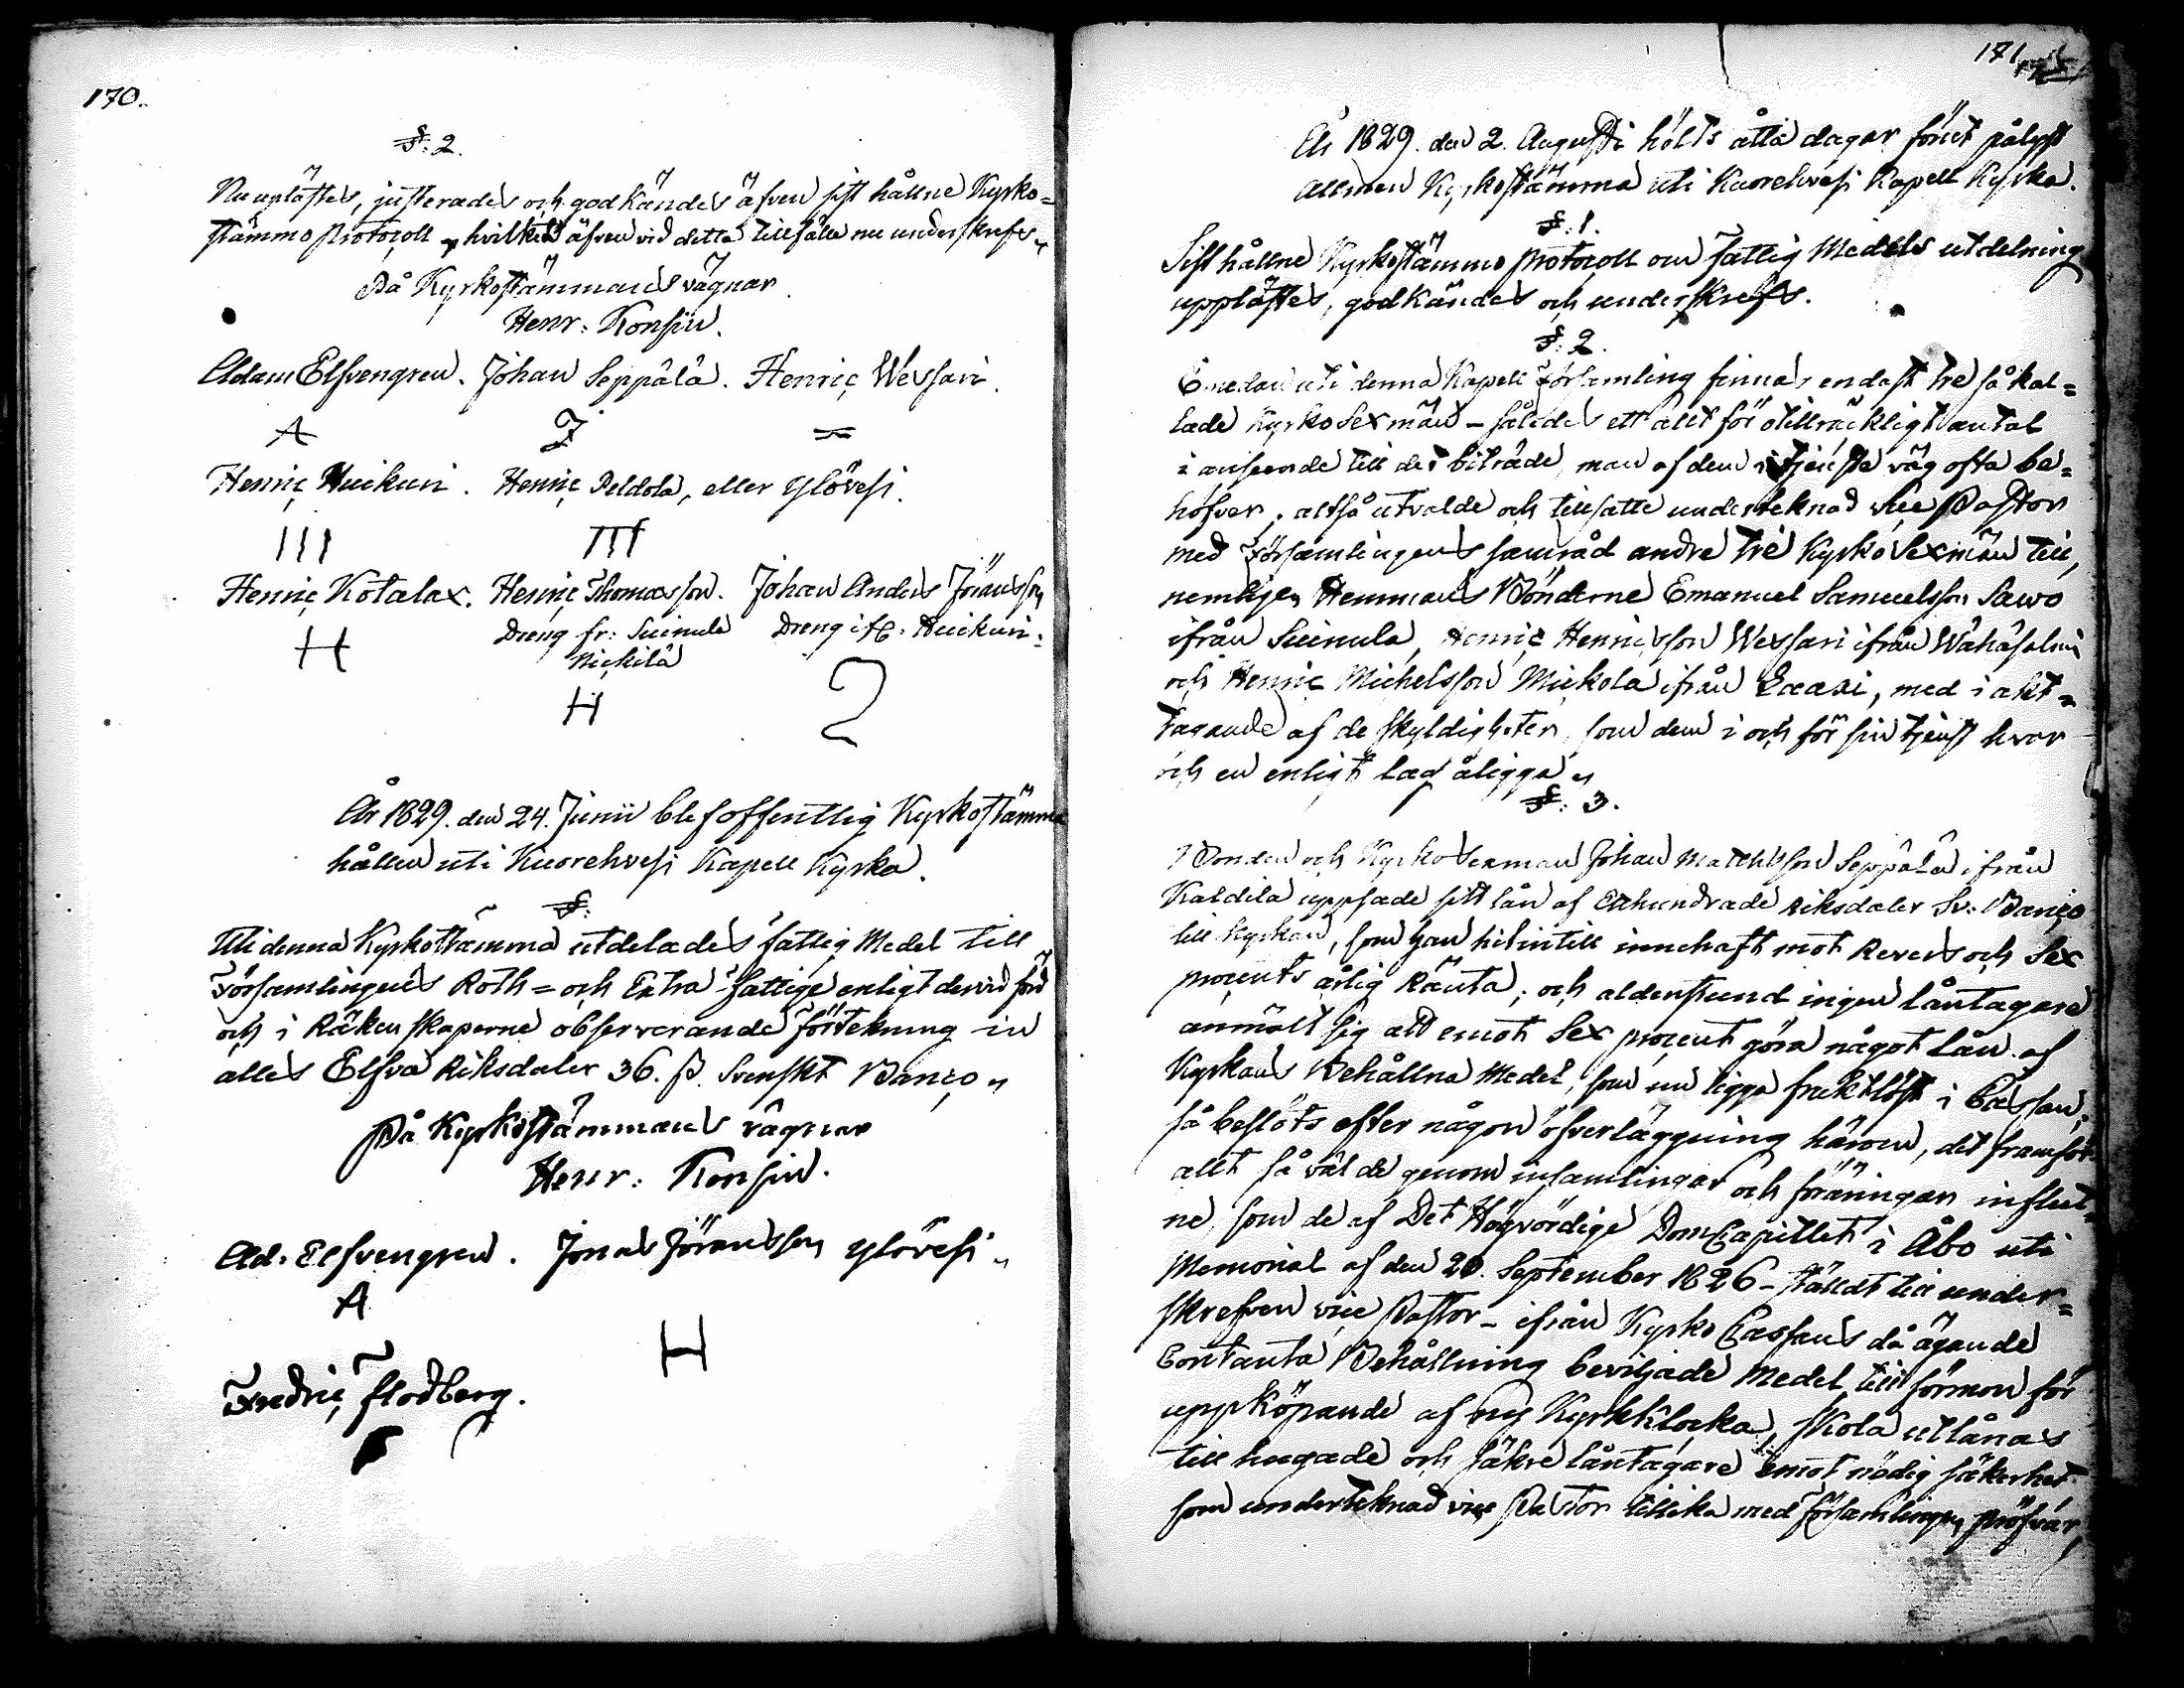 170.
§: 2.
Nu uplästes, justerades och godkändes äfven sist hållne Kyrko=
stämmo Protocoll, hvilket äfven vid detta tillfälle nu underskrefs„
På Kyrkostämmans vägnar
Henr: Konsin.
Adam Elfvengren. Johan Seppälä. Henric Wessari.
A J =
Henric Huikuri. Henric Peldola, eller Ylövesi.
III III
Henric Kotalax. Henric Thomasson. Johan Anders Jöransson
Dreng fr: Suinula Dreng ifr: Huikuri.
Nickilä
H
H 2
År 1829. den 24. Junii blef offentlig Kyrkostämma
hållen uti Kuorehvesi Kapell Kyrka.
§:
Uti denna Kyrkostämma utdelades fattig Medel till
Församlingens Roth= och Extra fattige enligt dervid förd
och i Räkenskaperne observerande förtekning in
alles Elfva Riksdaler 36. ß. Svenskt Banco„
På Kyrkostämmans vägnar
Henr: Konsin.
Ad. Elfvengren. Jonas Jöransson Ylövesi„
A H
Fredric Flodberg.
171
År 1829. den 2. Augusti hölts åtta dagar förut pålyst
allmän Kyrkostämma uti Kuorehvesi Kapell Kyrka.
§: 1.
Sist hållne Kyrkostämmo Protocoll om fattig Medels utdelning
upplästes, godkändes och underskrefs.
§: 2.
Emedan uti denna Kapell Församling finnas endast tre så kal=
lade Kyrko Sexmän – således ett allt för otillräckligt antal
i anseende till det biträde, man af dem i tjenste väg ofta be=
höfver, altså utvalde och tillsatte underteknad vice Pastor
med Församlingens samråd andre tre Kyrko Sexmän till,
nemligen Hemmans Bönderne Emanuel Samuelsson Sawo
ifrån Suinula, Henric Henricsson Wessari ifrån Wähäsalmi
och Henric Michelsson Mickola ifrån Laasi, med iakt=
tagande af de skyldigheter, som dem i och för sin tjenst hvar
och en enligt lag åligga„
§: 3.
Bonden och Kyrko Sexman Johan Mathsson Seppälä ifrån
Kaldila uppsade sitt lån af Etthundrade Riksdaler Sv: Banco
till Kyrkan, som han hitintill innehaft mot Revers och Sex
procents årlig Ränta; och aldenstund ingen låntagare
anmält sig att emot Sex procent göra något lån af
Kyrkans Behållna Medel, som nu ligga fruktlöst i Cassan;
så beslöts efter någon öfverläggning härom, det framför
allt så väl de genom insamlingar och föräringar influt=
ne, som de af Det Högvördige DomCapitlet i Åbo uti
Memorial af den 20. September 1826 – ställdt till under=
skrefven vice Pastor – ifrån Kyrko Cassans då ägande
Contanta Behållning beviljade Medel till förmon för
uppköpande af ny Kyrkklocka, skola utlånas
till hugade och säkre låntagare emot nödig säkerhet
som underteknad vice Pastor tillika med Församlingen pröfvar,